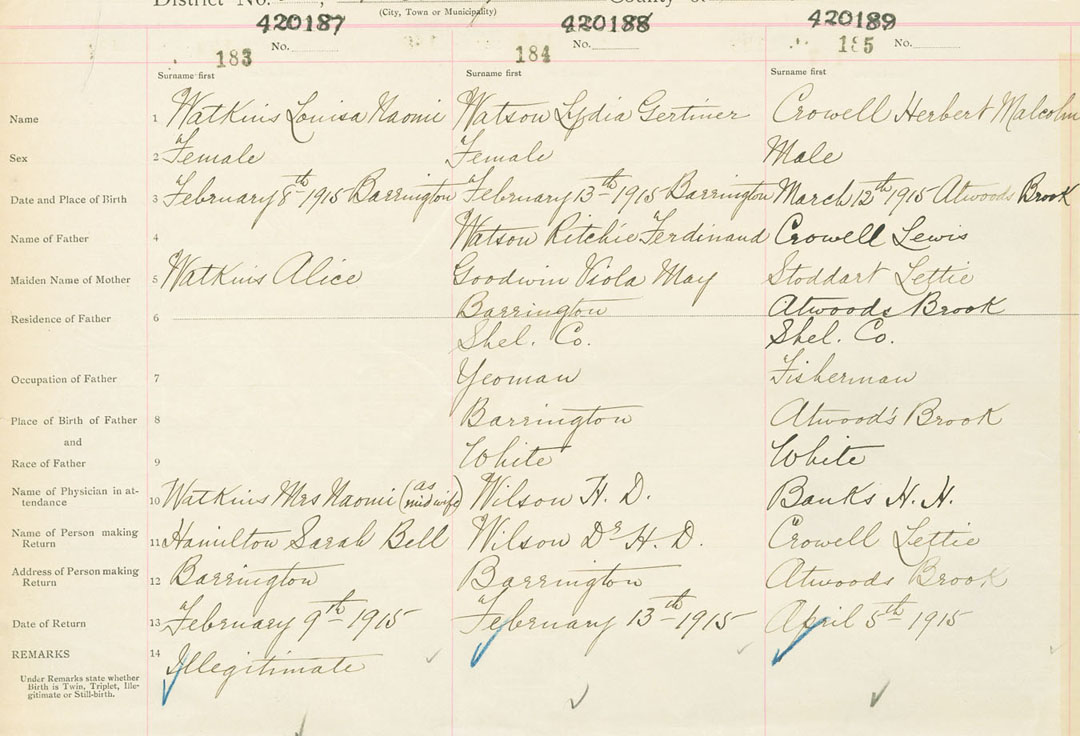 District No. County of
(City, Town or Municipality)
420187 420188 420189
183 No. 184 No. 185 No.
Surname first Surname first Surname first
Name 1 Watkins Louisa Naomi Watson Lydia Gertiner Crowell Herbert Malcolm
Sex 2 Female Female Male
Date and Place of Birth 3 February 8th 1915 Barrington February 13th 1915 Barrington March 12th 1915 Atwoods Brook
Name of Father 4 Watson Ritchie Ferdinand Crowell Lewis
Maiden Name of Mother 5 Watkins Alice Goodwin Viola May Stoddart Lettie
Residence of Father 6 Barrington Atwoods Brook
Shel. Co. Shel. Co.
Occupation of Father 7 Yeoman Fisherman
Place of Birth of Father 8 Barrington Atwood's Brook
and
Race of Father 9 White White
Name of Physician in at-
tendance 10 Watkins Mrs Naomi (as midwife) Wilson H. D. Banks H. H.
Name of Person making
Return 11 Hamilton Sarah Bell Wilson Dr H. D. Crowell Lettie
Address of Person making
Return 12 Barrington Barrington Atwoods Brook
Date of Return 13 February 9th 1915 February 13th 1915 April 5th 1915
REMARKS 14 Illegitimate
Under Remarks state whether
Birth is Twin, Triplet, Ille-
gitimate or Still-birth.